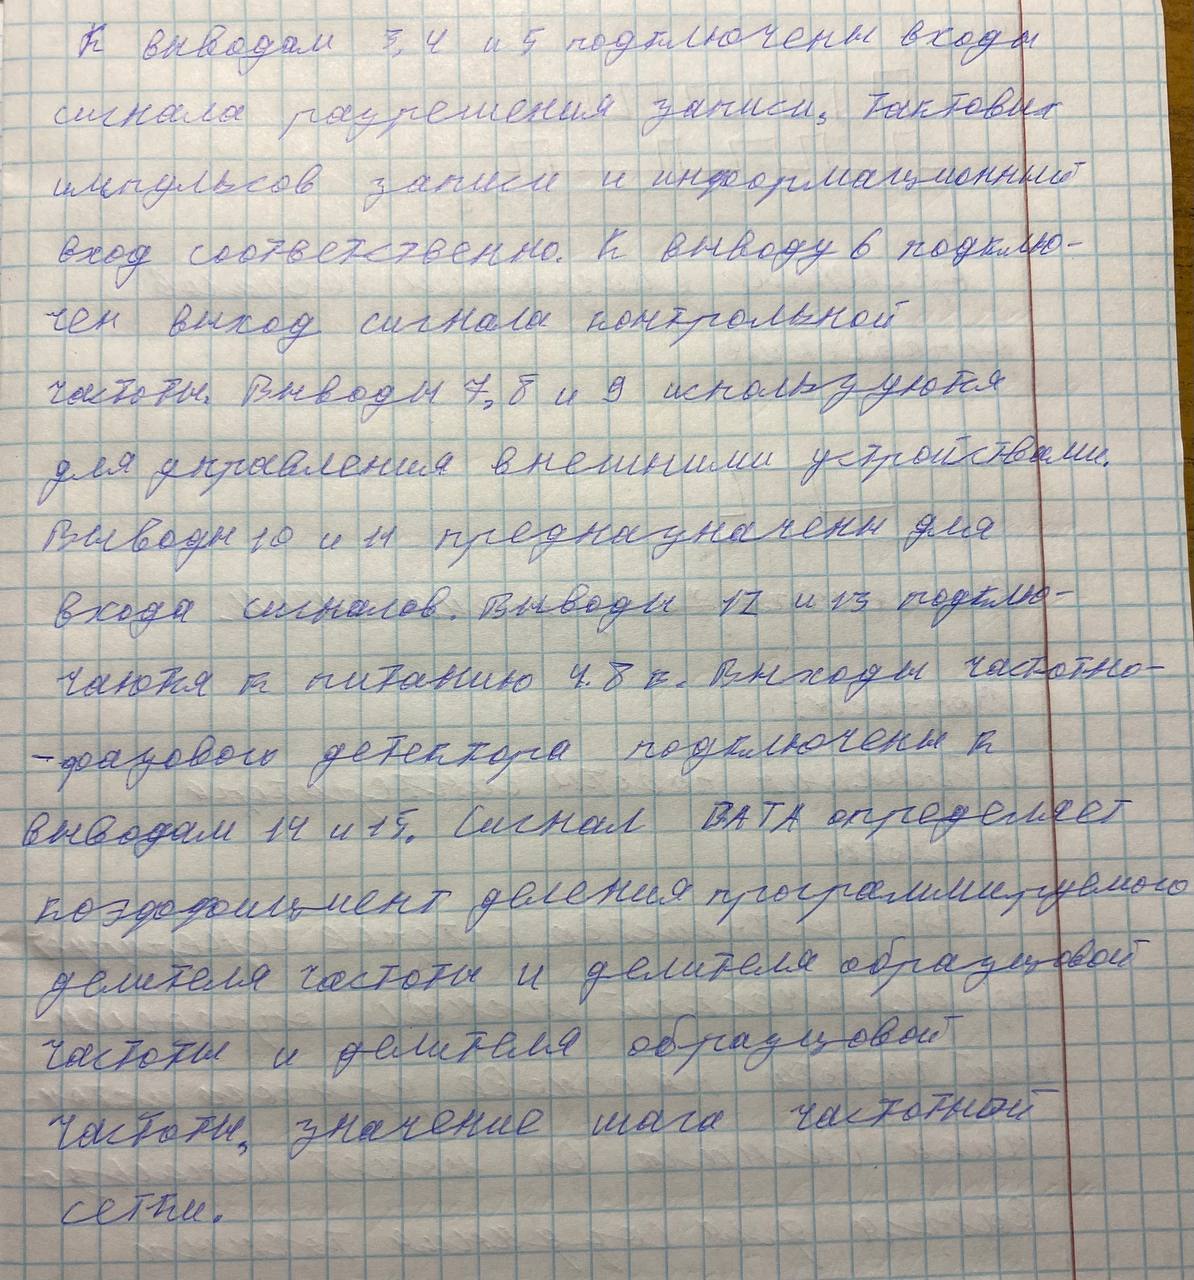 К выводам 3,4 и 5 подключены входы
сигнала разрешения записи, тактовых
импульсов записи и информационный
вход соответственно. К выводу 6 подклю-
чен выход сигнала контрольной
частоты. Выводы 7,8 и 9 используются
для управления внешними устройствами.
Выводы 10 и 11 предназначены для
входа сигналов. Выводы 12 и 13 подклю-
чаются к питанию 4.8 в. Выходы частотно-
-фазового детектора подключены к
выводам 14 и 15. Сигнал DATA определяет
коэффициент деления программируемого
делителя частоты и делителя образцовой
частоты и делителя образцовой
частоты, значение шага частотной
сетки.